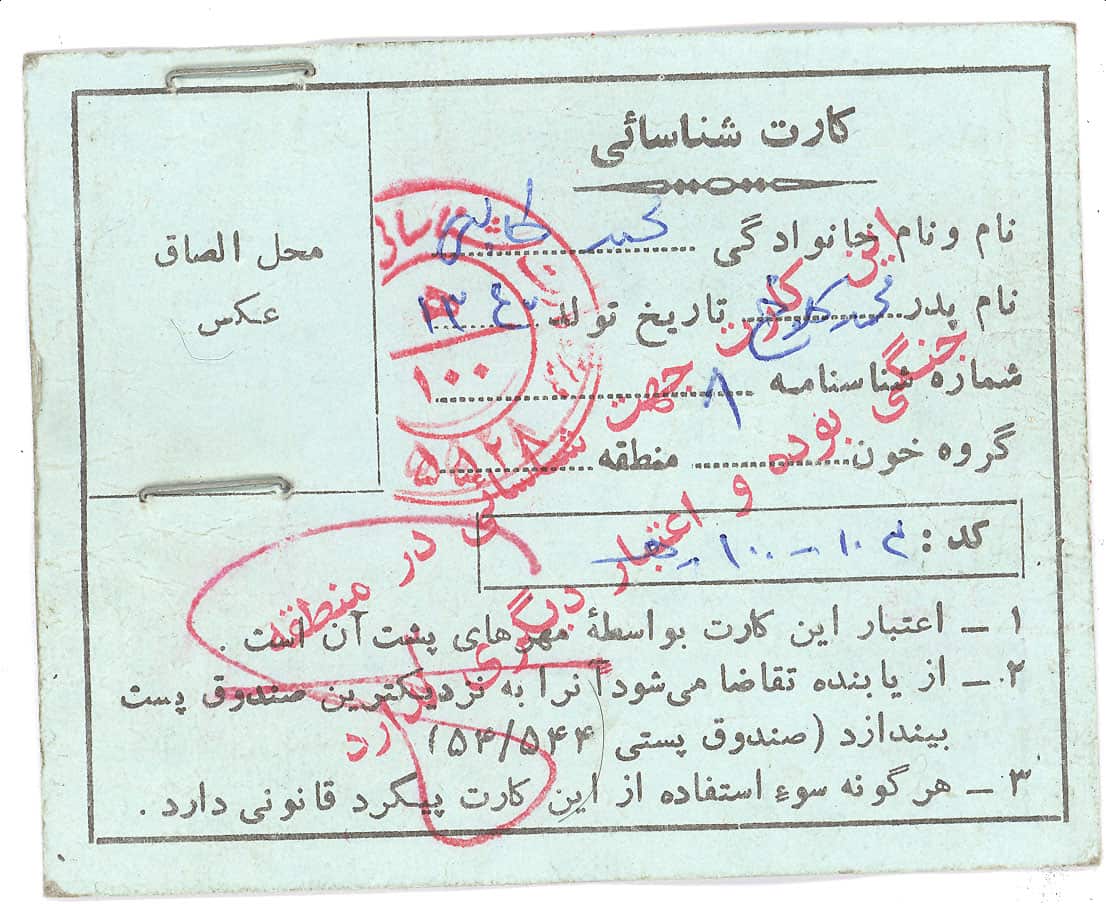 کارت شناسائی
نام و نام خانوادگی محمد
نام پدر تاریخ تولد ۱۳۴۳
شماره شناسنامه ۸
گروه خون منطقه
کد : ۱۰۰ - ۱۰۳
۱ ـ اعتبار این کارت بواسطهٔ مهرهای پشت آن است .
۲ ـ از یابنده تقاضا می‌شود آنرا به نزدیکترین صندوق پست
بیندازد (صندوق پستی ۵۴/۵۴۴)
۳ ـ هر گونه سوء استفاده از این کارت پیگرد قانونی دارد .
محل الصاق
عکس
این کارت جهت شناسائی در منطقه
جنگی بوده و اعتبار دیگری ندارد
۵
۱۰۰
۵۵۲۸